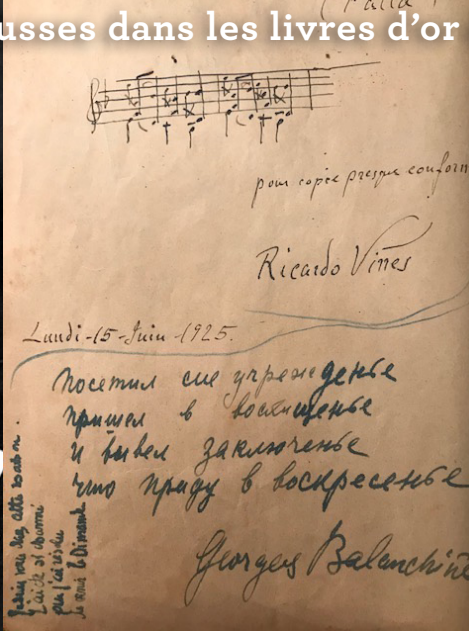 usses dans les livres d’or
(Falla)
pour copie presque conform
Ricardo Viñes
Lundi-15-Juin-1925.
посетил сие учрежденье
пришел в восхищенье
и вывел заключенье
что приду в воскресенье
Georges Balanchine